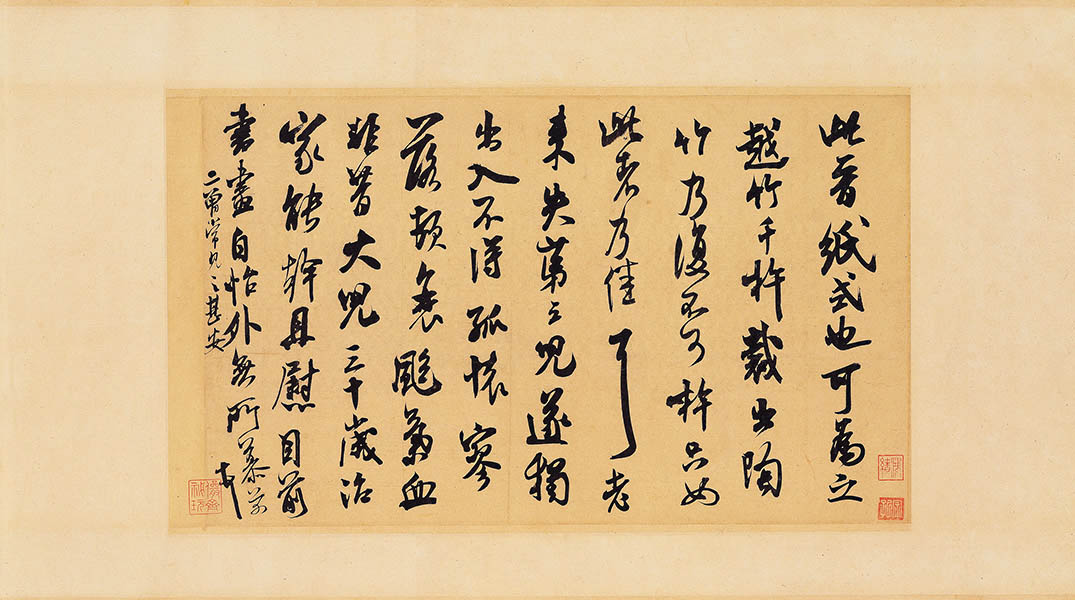 此晉紙式也可為之
越竹千杵裁出陶
竹乃復不可杵只如
此者乃佳耳老
來失第三兒遂獨
出入不得孤懷寥
落頓衰颷氣血
非昔大兒三十歲治
家能幹且慰目前
書畫自怡外無所慕芾
二曾常見之甚安